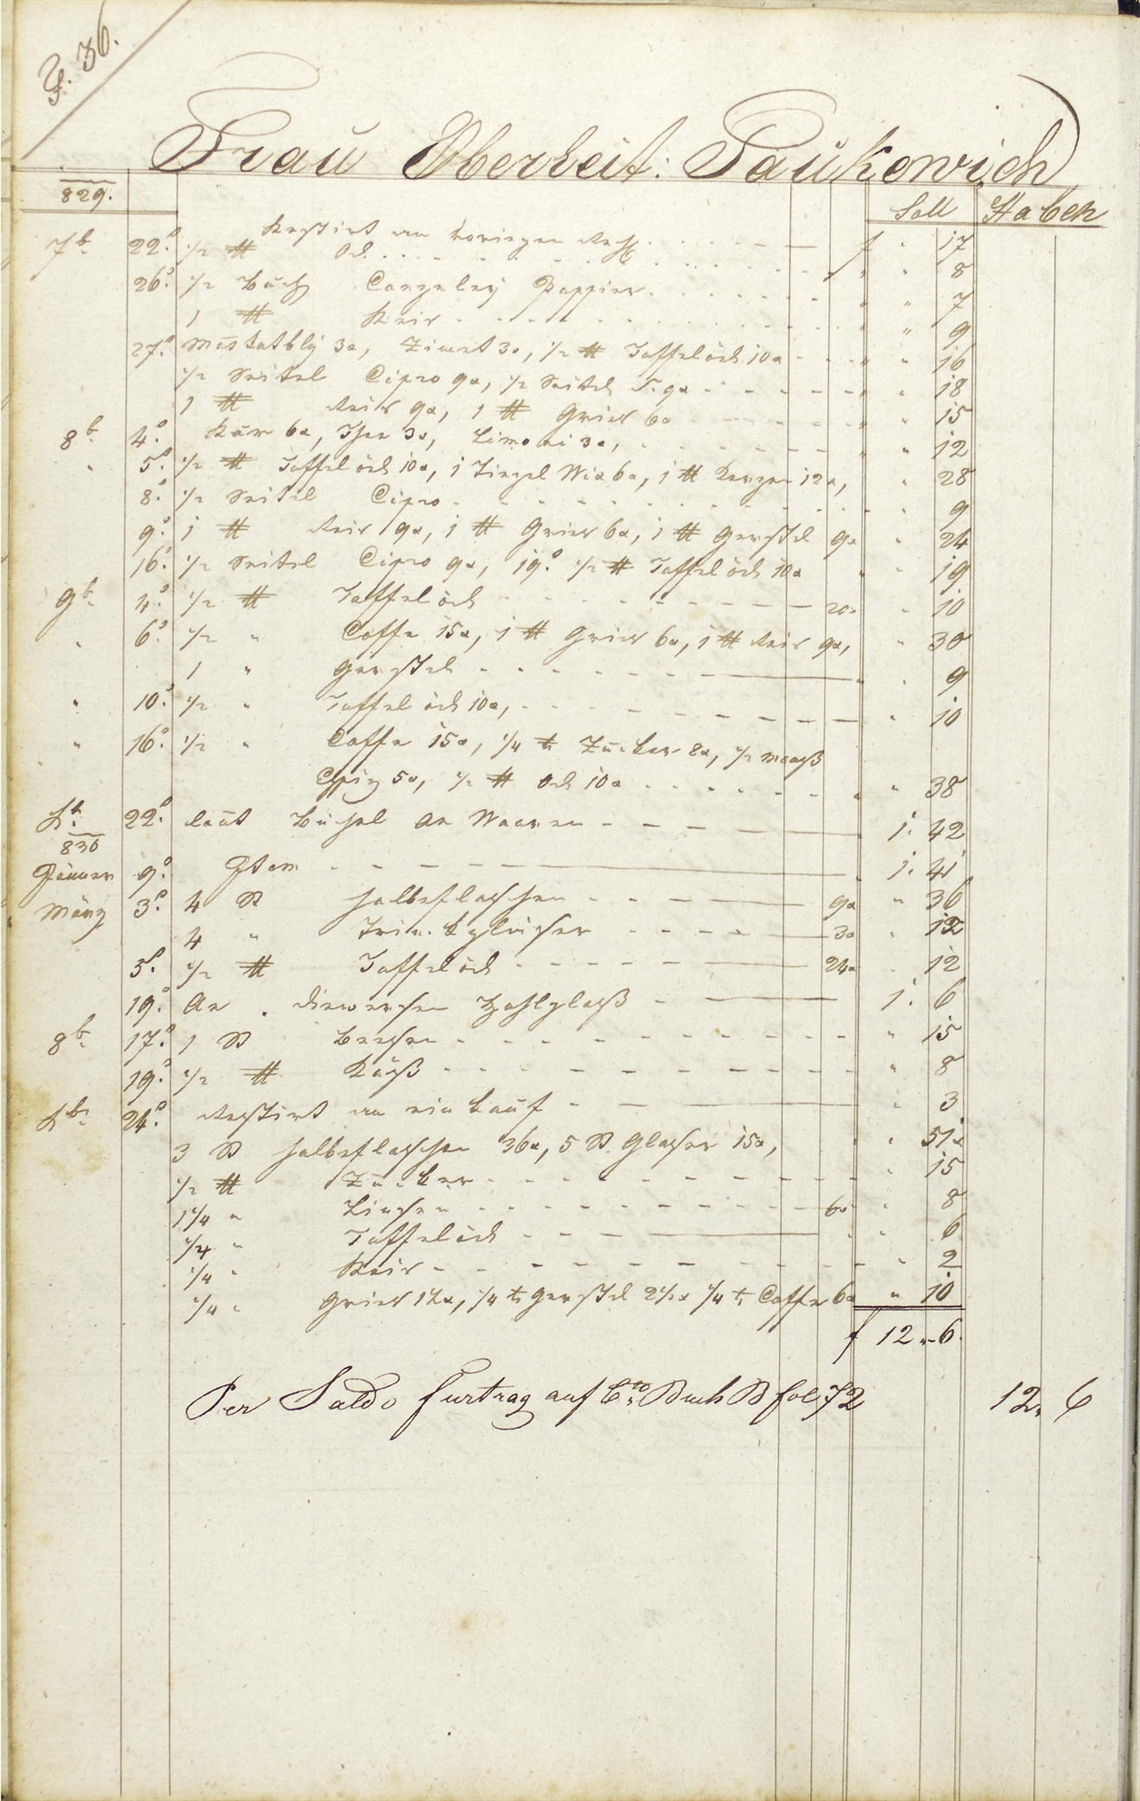 F: 36.
Frau Oberleit: Paukowich
829. Soll Haben
Restirt an vorigen Rech f " 17
7b. 22. 1/2 ℔ Öch " 8
26. 1/2 Buch Canzeley Pappier " 7
1 ℔ Reis " 9
27. Muskatblü 3x, Zimet 3x, 1/2 ℔ Taffelöch 10x " 16
1/2 Seitel Cipro 9x, 1/2 Seitel 9x " 18
1 ℔ Reis 9x, 1 ℔ Gries 6x " 15
8b. 4. 6x, Thee 3x, Limoni 3x, " 12
" 5. 1/2 ℔ Taffelöch 10x, 1 Tiegel Wix 6x, 1 ℔ Kerzen 12x, " 28
8. 1/2 Seitel Cipro " 9
9. 1 ℔ Reis 9x, 1 ℔ Gries 6x, 1 ℔ Gerstel 9x " 24
16. 1/2 Seitel Cipro 9x, 19. 1/2 ℔ Taffelöch 10x " 19
9b. 4. 1/2 ℔ Taffelöch 20x " 10
" 6. 1/2 " Caffe 15x, 1 ℔ Gries 6x, 1 ℔ Reis 9x, " 30
1 " Gerstel " 9
" 10. 1/2 " Taffelöch 10x, " 10
" 16. 1/2 " Caffe 15x, 1/4 ℔ Zucker 8x, 1/2 maaß
Essig 5x, 1/2 ℔ Öch 10x " 38
Xb. 22. laut Büchel an Waaren 1. 42
830
Jänner 9. Itom 1. 41
März 3. 4 St halbeflaschen 9x " 36
4 " Trinkgläser 3x " 12
5. 1/2 ℔ Taffelöch 24x " 12
19. An diewersen Hohlglaß 1. 6
8b. 17. 1 St Beesen " 15
19. 1/2 ℔ Käß " 8
Xb. 24. Restirt an einkauf " 3
3 St halbeflaschen 36x, 5 St Glaser 15x, " 51x
1/2 ℔ Zucker " 15
1 1/4 " Linsen 6x " 8
1/4 " Taffelöch " 6
1/4 " Reis " 2
1/4 " Gries 1 1/2x, 1/4 ℔ Gerstel 2 1/2x 1/4 ℔ Caffe 6x " 10
f 12 " 6.
Per Saldo Furtrag auf Cto Buch B fol 72 12 " 6